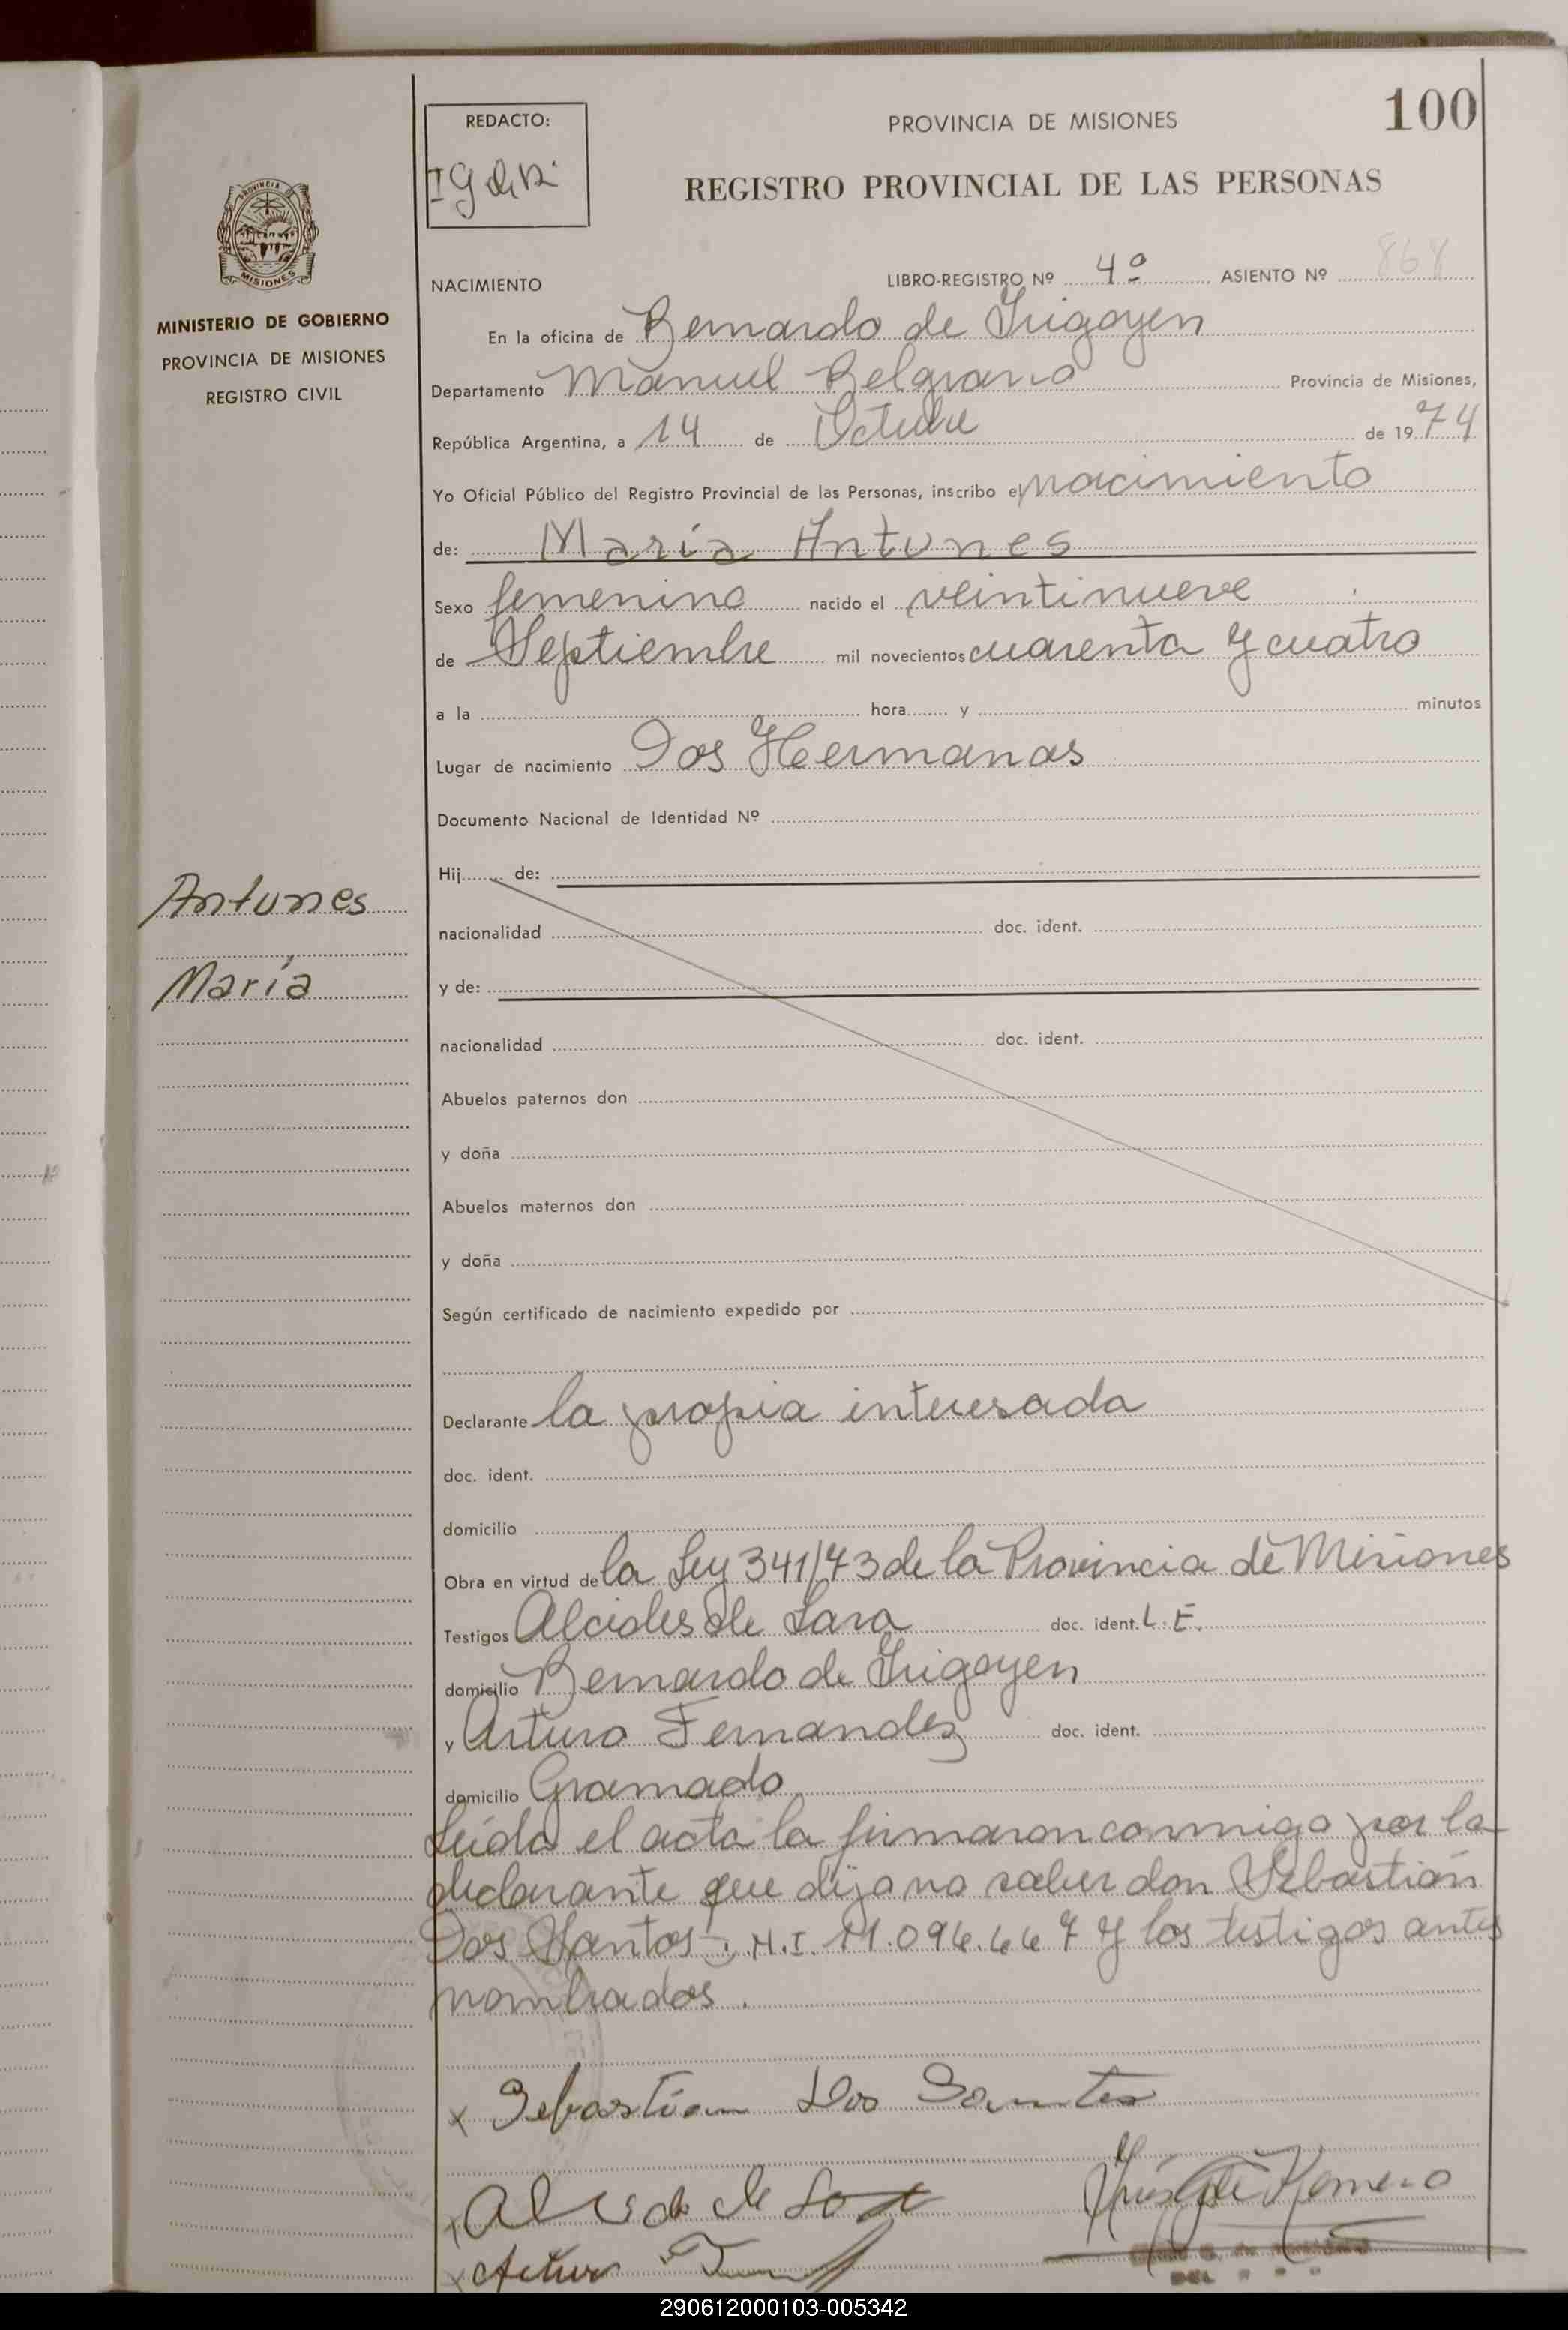 100
REDACTO:
PROVINCIA DE MISIONES
REGISTRO PROVINCIAL DE LAS PERSONAS
PROVINCIA DE MISIONES
MINISTERIO DE GOBIERNO
PROVINCIA DE MISIONES
REGISTRO CIVIL
NACIMIENTO LIBRO-REGISTRO Nº 4º ASIENTO Nº 868
En la oficina de Bernardo de Irigoyen
Departamento Manuel Belgrano Provincia de Misiones,
República Argentina, a 14 de Octubre de 1974
Yo Oficial Público del Registro Provincial de las Personas, inscribo el nacimiento
de: María Antunes
Sexo femenino nacido el veintinueve
de Septiembre mil novecientos cuarenta y cuatro
a la hora y minutos
Lugar de nacimiento Dos Hermanas
Documento Nacional de Identidad Nº
Antunes
María
Hij de:
nacionalidad doc. ident.
y de:
nacionalidad doc. ident.
Abuelos paternos don
y doña
Abuelos maternos don
y doña
Según certificado de nacimiento expedido por
Declarante la propia interesada
doc. ident.
domicilio
Obra en virtud de la Ley 341/73 de la Provincia de Misiones
Testigos Alcides de Lara doc. ident. L.E.
domicilio Bernardo de Irigoyen
y Arturo Fernandez doc. ident.
domicilio Gramado
Leída el acta la firmaron conmigo por la
declarante que dijo no saber don Sebastián
Dos Santos M.I. y los testigos antes
nombrados.
x Sebastian Dos Santos
x Alcides de Lara
Romero
x Arturo
290612000103-005342